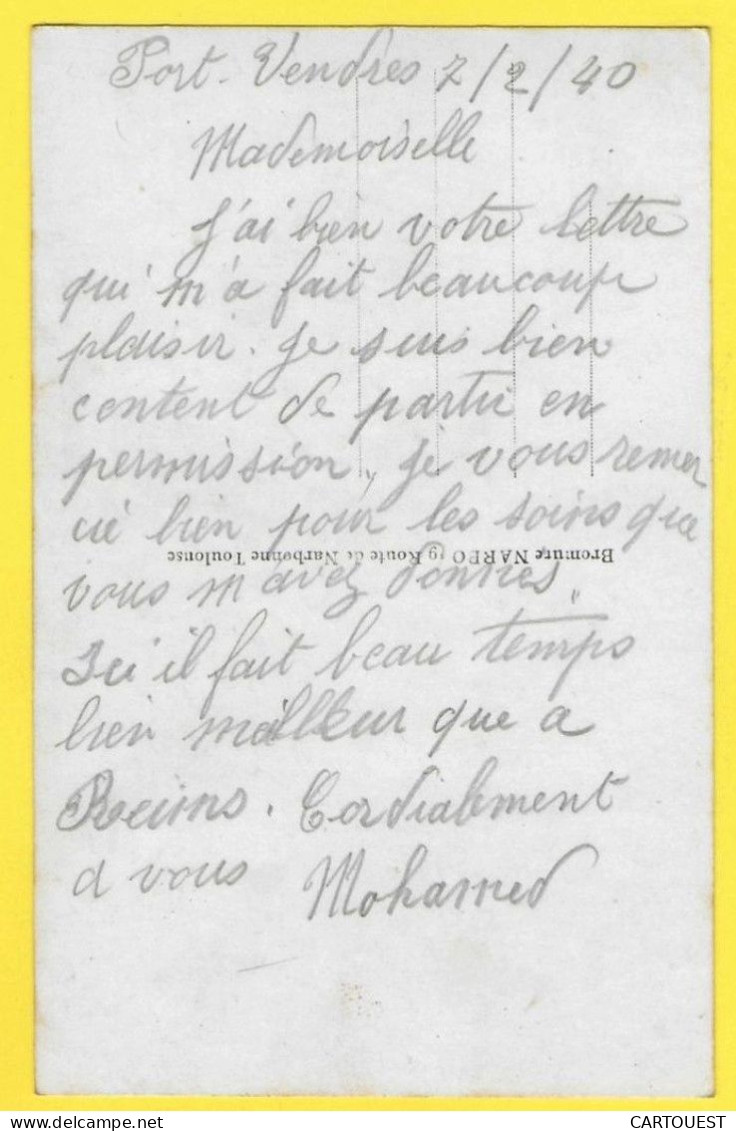 Port-Vendres 7/2/40
Mademoiselle
J'ai bien votre lettre
qui m'a fait beaucoup
plaisir. Je suis bien
content de partir en
permission, je vous remer
cié bien pour les soins que
Bromure NARBO 19 Route de Narbonne Toulouse
vous m'avez donnés,
Ici il fait beau temps
bien meilleur que a
Reims. Cordialement
a vous Mohamed
CARTOUEST